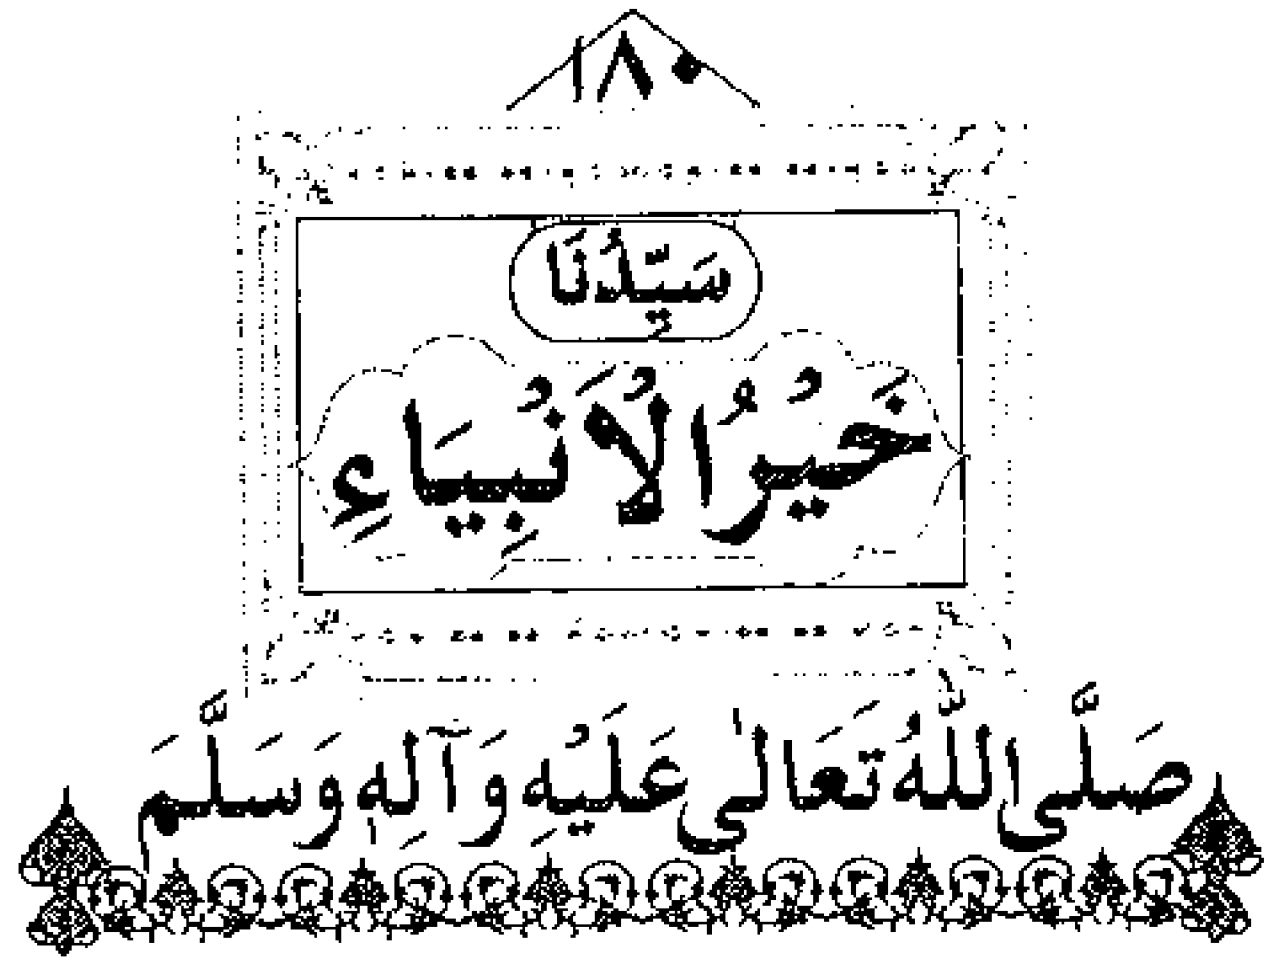 ١٨٠
سَيِّدُنَا
خَيْرُ الْأَنْبِيَاءِ
صَلَّى اللّٰهُ تَعَالٰى عَلَيْهِ وَآلِهٖ وَسَلَّمَ